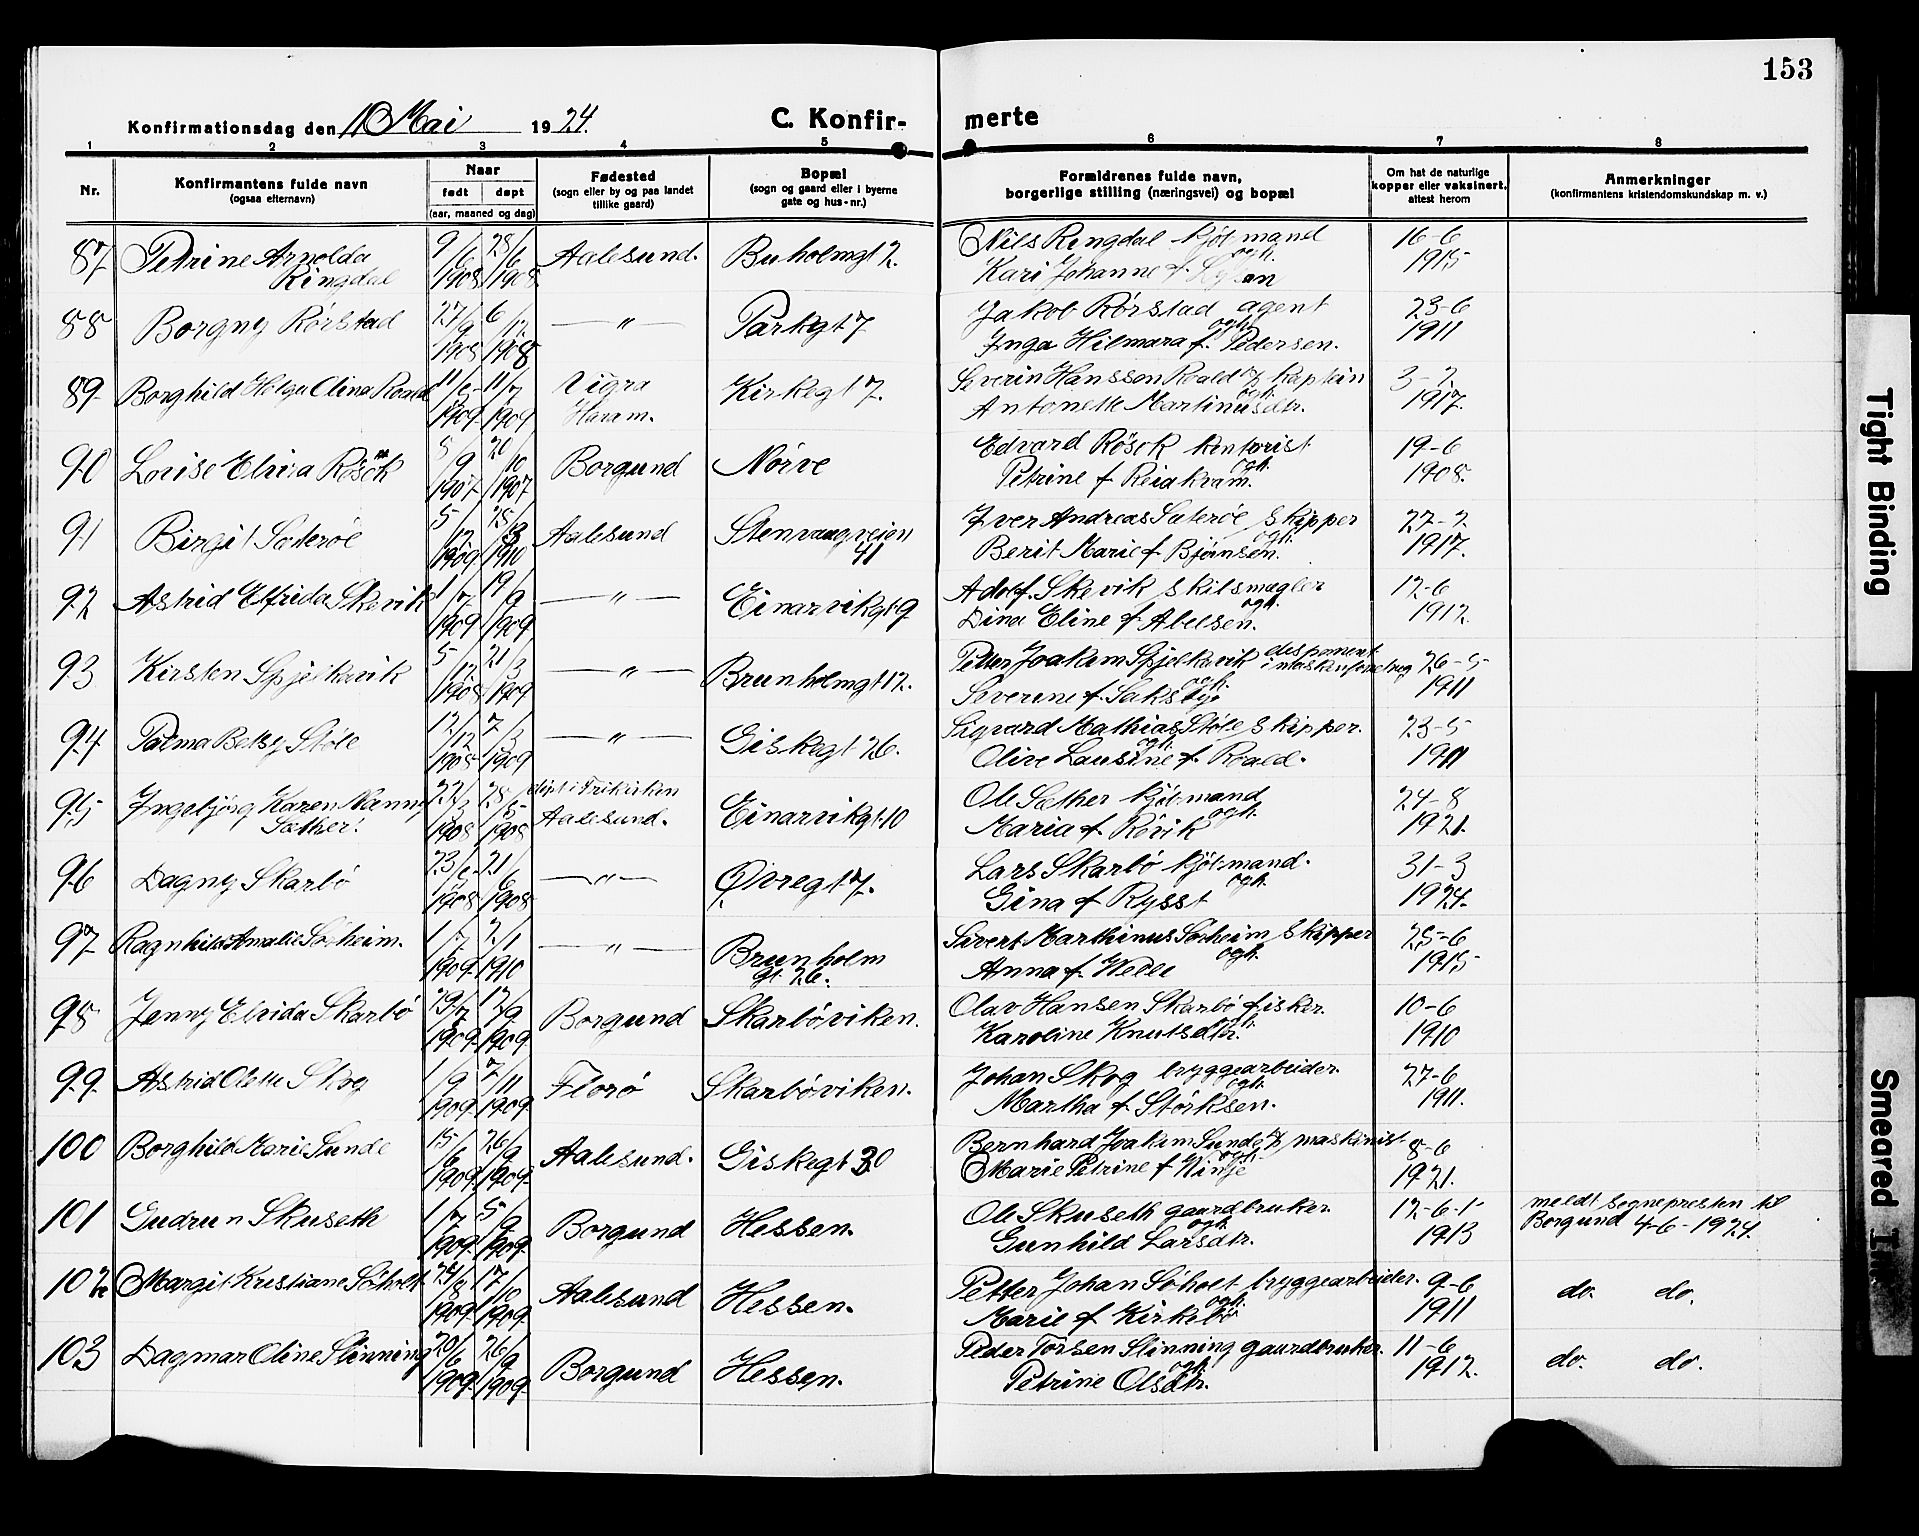 153
Konfirmationsdag den 11 Mai 1924.
C. Konfir- merte
1 2 3 4 5 6 7 8
Nr.
Konfirmantens fulde navn
(ogsaa efternavn)
Naar
født døpt
(aar, maaned og dag)
Fødested
(sogn eller by og paa landet
tillike gaard)
Bopæl
(sogn og gaard eller i byerne
gate og hus-nr.)
Forældrenes fulde navn,
borgerlige stilling (næringsvei) og bopæl
Om hat de naturlige
kopper eller vaksinert,
attest herom
Anmerkninger
(konfirmantens kristendomskundskap m. v.)
87 Petrine Arnolda Ringdal 9/6 1908 28/6 1908 Aalesund. Buholmgt 2. Nils Ringdal kjøtmand ogh. Kari Johanne f. 16-6 1915
88 Borgny Rørstad 27/9 1908 6/12 1908 —"— Parkgt 7 Jakob Rørstad agent ogh. Inga Hilmara f. Pedersen. 23-6 1911
89 Borghild Helga Olina Roald 11/5 1909 11/7 1909 Vigra Haram. Kirkegt 7. Severin Hansson Roald kaptein ogh. Antonette Martinusdtr. 3-7 1917.
90 Lovise Elvira Røsok 5/9 1907 20/10 1907 Borgund Nørve Edvard Røsok kontorist ogh. Petrine f Reiakvam. 19-6 1908.
91 Birgit Säterøe 5/12 1909 25/3 1910 Aalesund Stenvaagveien 41 Iver Andreas Säterøe skipper ogh. Berit Marie f Bjørnsen. 27-7 1917.
92 Astrid Elfrida Skevik 1/7 1909 19/9 1909 —"— Einarvikgt 9 Adolf Skevik skibsmægler ogh. Dina Eline f Abelsen. 12-6 1912.
93 Kirsten Spjelkavik 5/12 1908 21/3 1909 —"— Brunholmgt 12. Petter Joakim Spjelkavik disponent i maskinforretng ogh. Severine f. 26-5 1911
94 Palma Betsy Støle 12/12 1908 7/3 1909 —"— Giskegt 26. Sigvard Mathias Støle skipper. ogh. Olive Lausine f. Roald. 23-5 1911
95 Ingebjørg Karen Nanny Sæther. 22/3 1908 28/5 1908 døpt i Frikirken Aalesund. Einarvikgt 10 Ole Sæther kjøtmand ogh. Maria f. Røvik 24-8 1921.
96 Dagny Skarbø 23/5 1908 21/6 1908 —"— Øvregt 7. Lars Skarbø kjøtmand. ogh. Gina f Rysst 31-3 1924.
97 Ragnhild Amalie Sørheim. 1/7 1909 2/1 1910 —"— Brunholm gt. 26. Sivert Marthinus Sørheim skipper ogh. Anna f. Wedee 25-6 1915
98 Jenny Elvida Skarbø 29/7 1909 12/9 1909 Borgund Skarbøviken. Olav Hansen Skarbø fisker. ogh. Karoline Knutsdtr. 10-6 1910
99. Astrid Olette Skog 1/9 1909 7/11 1909 Florø Skarbøviken. Johan Skog bryggearbeider. ogh. Martha f Størksen. 27-6 1911.
100 Borghild Marie Sunde 15/6 1909 26/9 1909 Aalesund. Giskegt 30 Bernhard Joakim Sunde maskinist ogh. Marie Petrine f Vinje 8-6 1921.
101 Gudrun Skuseth 1/7 1909 5/9 1909 Borgund Hessen. Ole Skuseth gaardbruker ogh. Gunhild Larsdtr. 12-6- 1913 meldt sognepresten til Borgund 4-6-1924.
102 Margit Kristiane Søholt 24/8 1909 17/10 1909 Aalesund Hessen. Petter Johan Søholt bryggearbeider. ogh. Marie f Kirkebø 9-6 1911 do. do.
103 Dagmar Oline Slinning 20/6 1909 26/9 1909. Borgund Hessen. Peder Torsen Slinning gaardbruker. ogh. Petrine Olsdtr. 11-6 1912. do. do.
Tight Binding
Smeared Ink